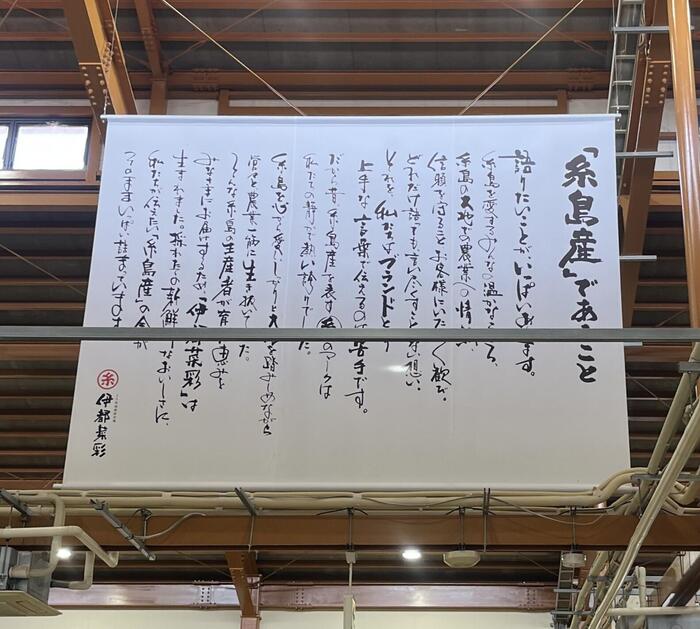 「糸島産」であること
語りたいことがいっぱいあります。
糸島を愛するみんなの温かなこころ、
糸島の大地で農業への情
信頼を守ること お客様にいただく歓び。
どれだけ語っても言い尽くすことない想い、
それを、私たちはブランドとり
上手な言葉で伝えるのは苦手です。
だいぶ昔、糸島産を表す糸のマークは
私たちの静かで熱い誇りでした。
糸島を心から愛し、しっかりと大地を踏みしめながら
農業一筋に生き抜いてきた。
そんな糸島の生産者が育む恵みを
みなさまにお届けするため「伊都菜彩」は
生まれました。採れたての新鮮なおいしさに、
私たちが伝えたい「糸島産」の全てが
いっぱい詰まっています
糸
伊都菜彩